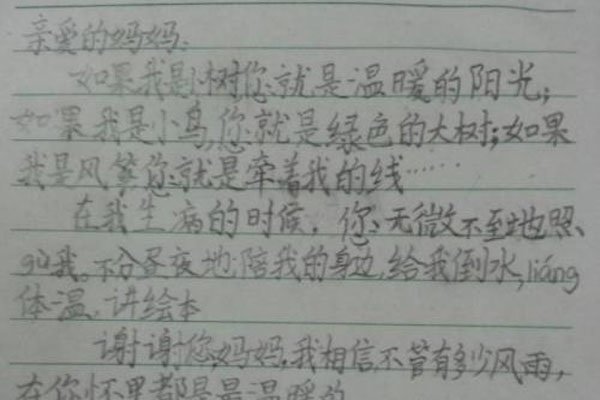 亲爱的妈妈:
如果我是小树你就是温暖的阳光;
如果我是小鸟,你就是绿色的大树;如果
我是风筝您就是牵着我的线……
在我生病的时候,你无微不至地照
gù我。不分昼夜地陪我的身边,给我倒水,liáng
体温,讲绘本
谢谢您,妈妈,我相信不管有多少风雨,
在你怀里都是最温暖的